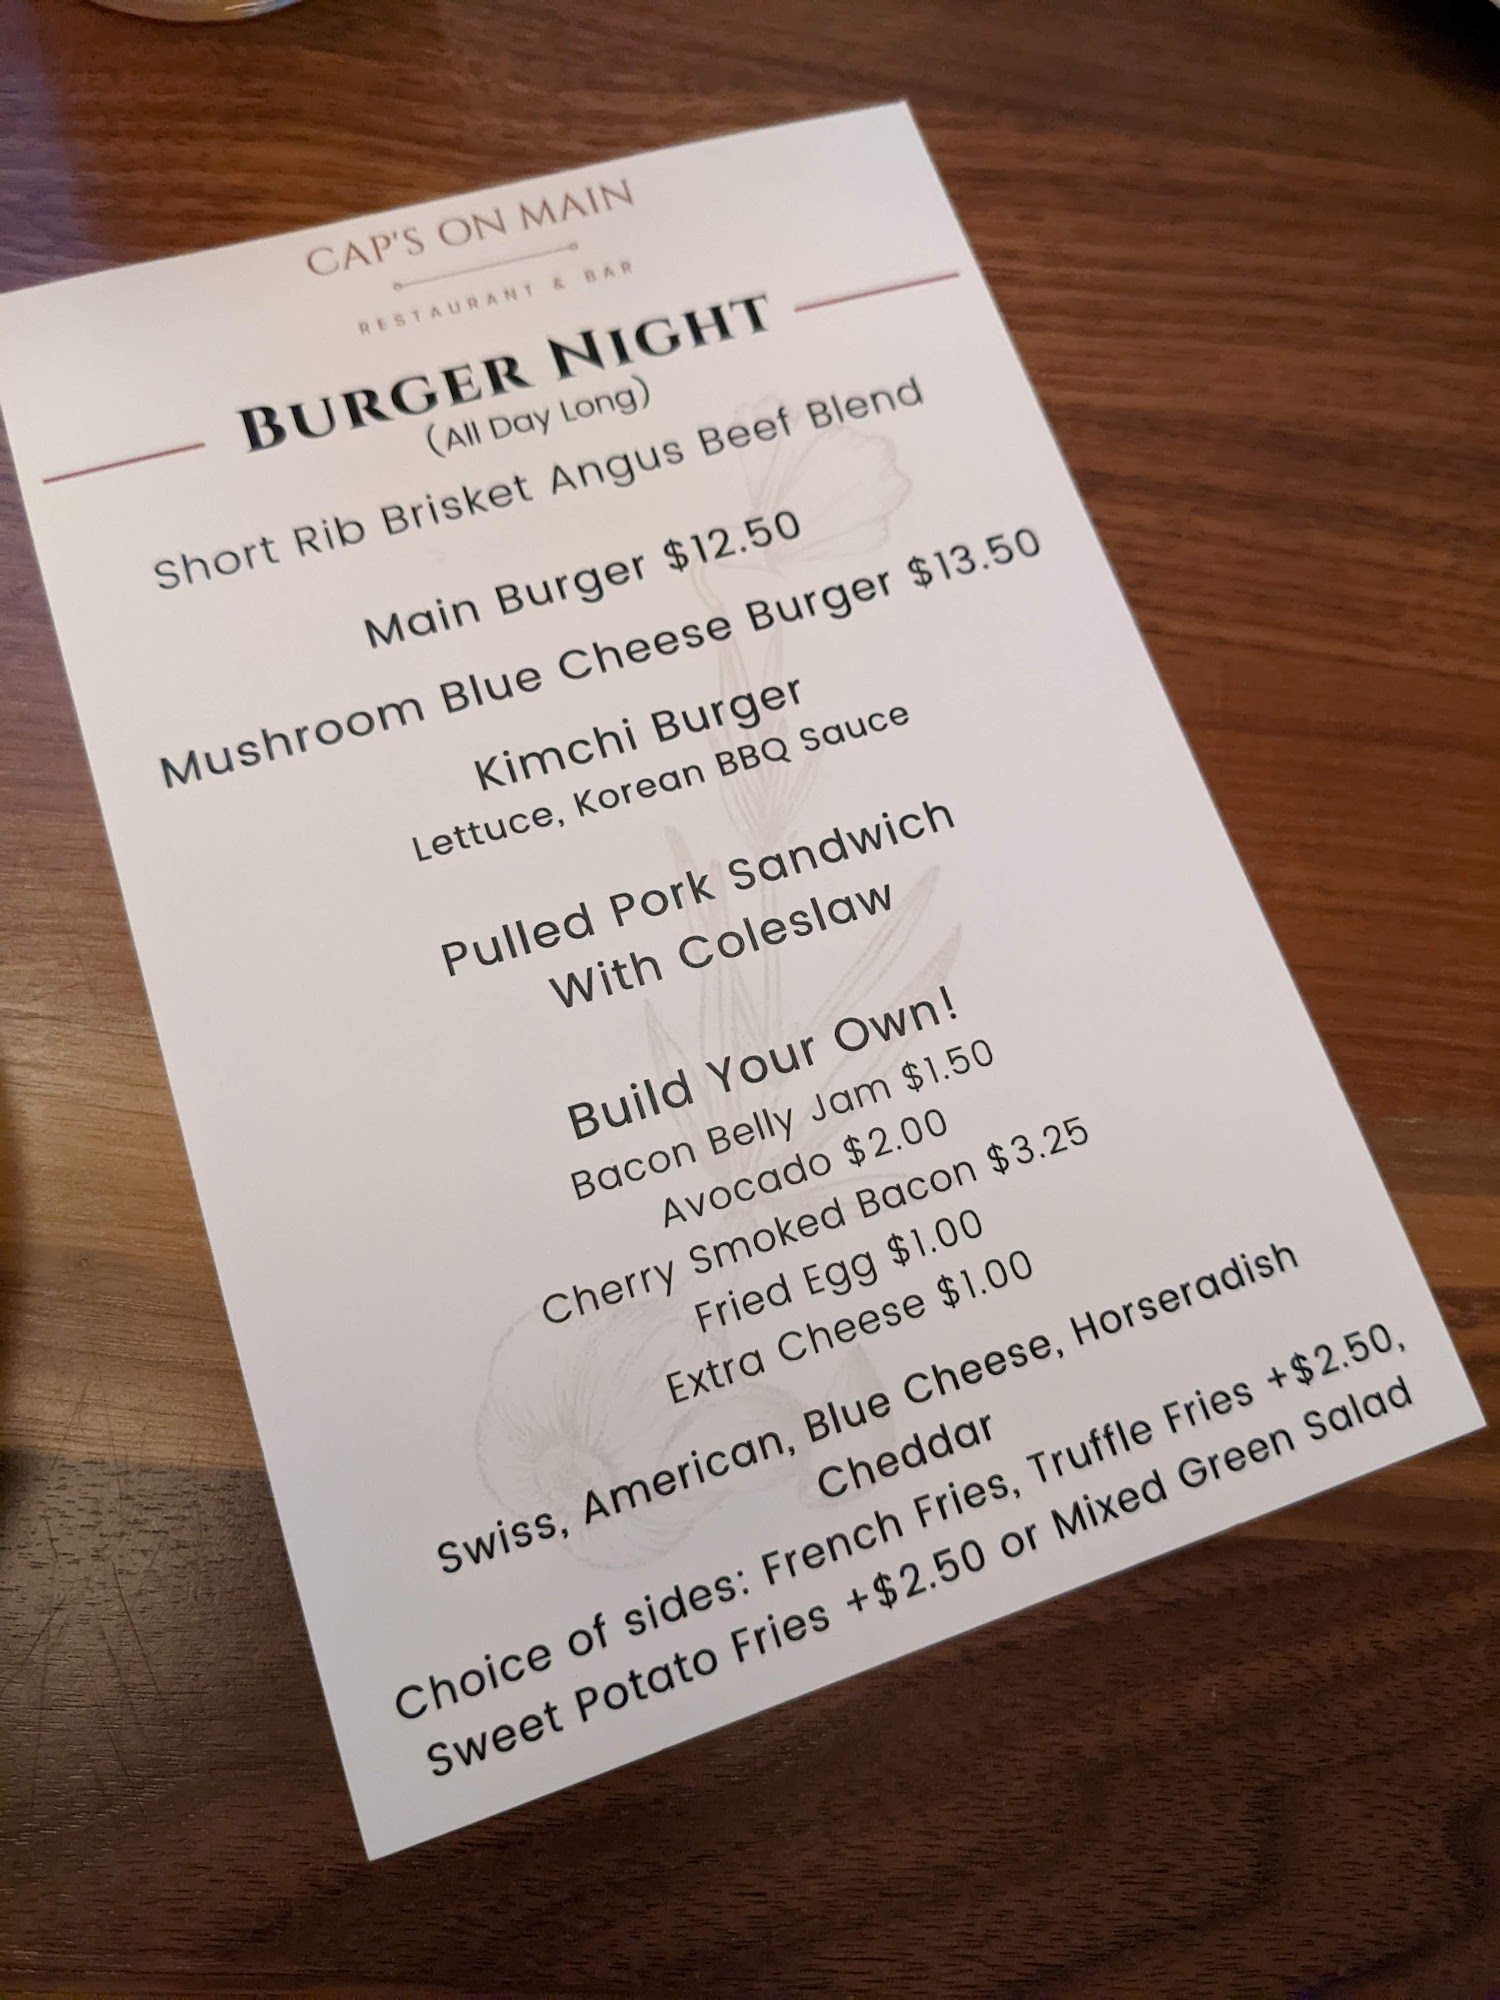 CAP'S ON MAIN
RESTAURANT & BAR
BURGER NIGHT
(All Day Long)
Short Rib Brisket Angus Beef Blend
Main Burger $12.50
Mushroom Blue Cheese Burger $13.50
Kimchi Burger
Lettuce, Korean BBQ Sauce
Pulled Pork Sandwich
With Coleslaw
Build Your Own!
Bacon Belly Jam $1.50
Avocado $2.00
Cherry Smoked Bacon $3.25
Fried Egg $1.00
Extra Cheese $1.00
Swiss, American, Blue Cheese, Horseradish
Cheddar
Choice of sides: French Fries, Truffle Fries +$2.50,
Sweet Potato Fries +$2.50 or Mixed Green Salad